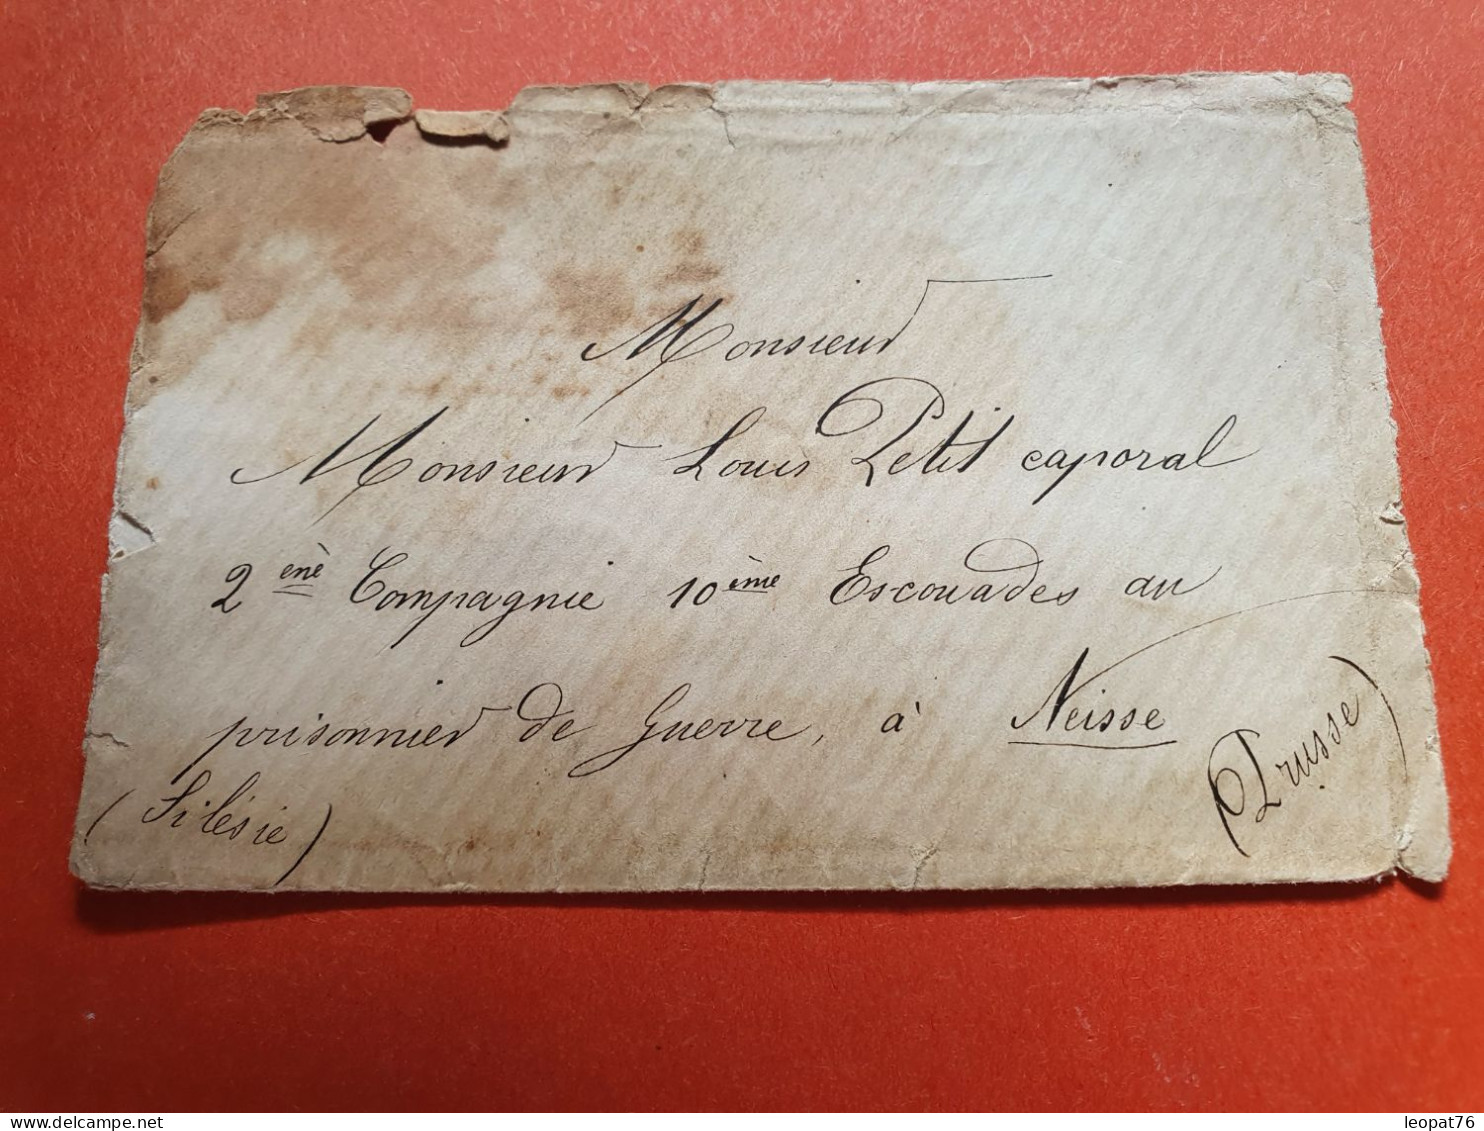 Monsieur
Monsieur Louis Petit caporal
2ème Compagnie 10ème Escouades au
prisonnier de Guerre, à Neisse
(Silésie)
(Prusse)
leopat76